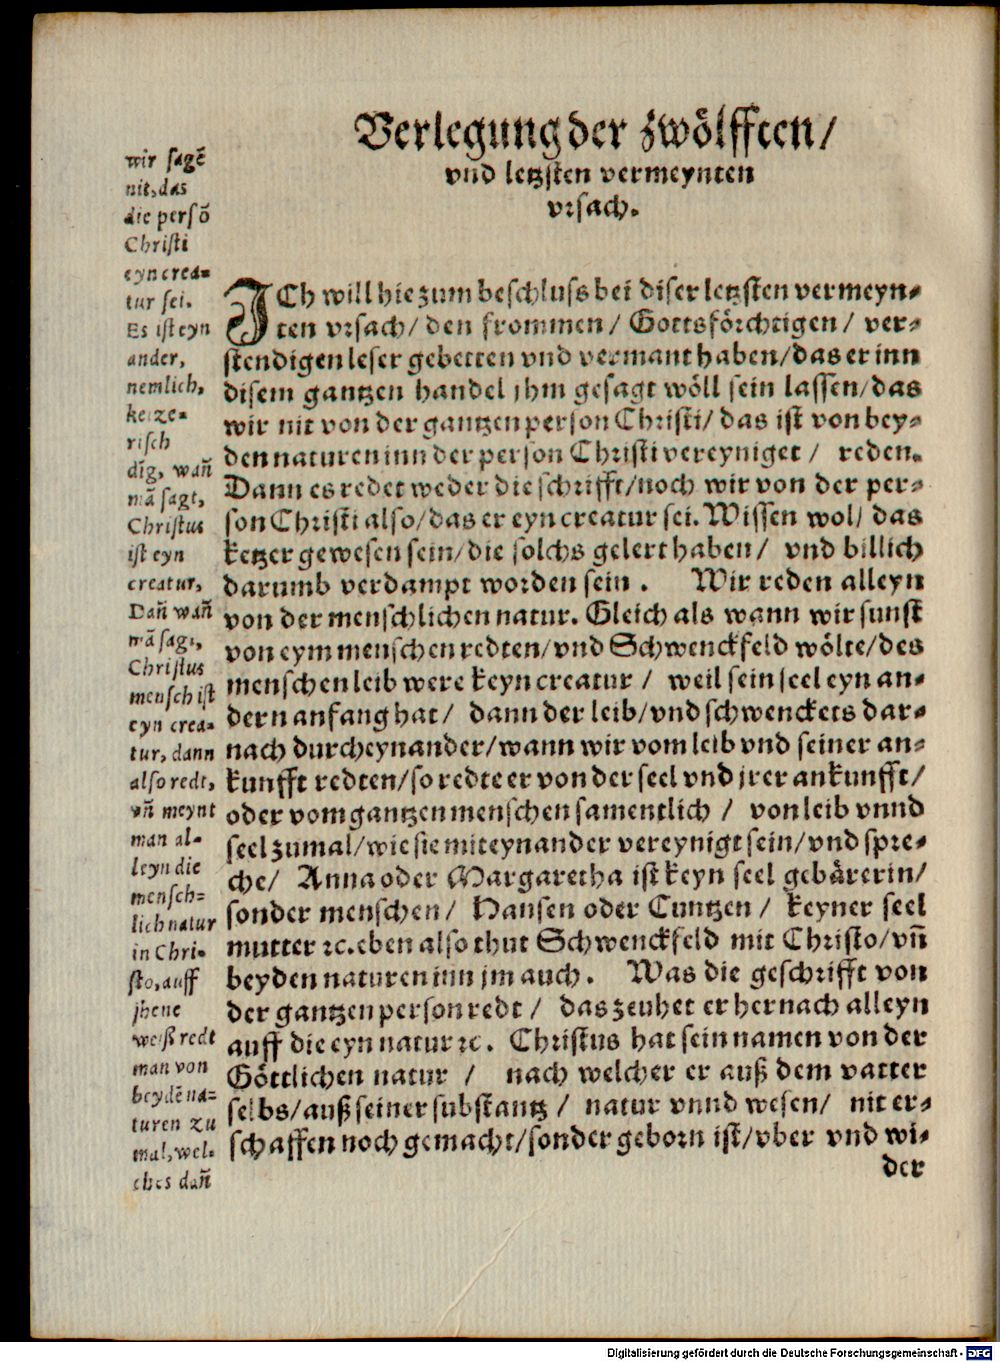 Verlegung der zwölfften /
vnd letzsten vermeynten
vrsach.
wir sagẽ
nit, das
die persõ
Christi
eyn crea=
tur sei.
Es ist eyn
ander,
nemlich,
ketze=
risch
dig, wañ
mã sagt,
Christus
ist eyn
creatur,
Dañ wañ
mã sagt,
Christus
mensch ist
eyn crea=
tur, dann
also redt,
vñ meynt
man al=
leyn die
mensch=
lich natur
in Chri=
sto, auff
jhene
weiß redt
man von
beydẽ na=
turen zu
mal, wel=
ches dañ
ICh will hie zum beschluss bei diser letzsten vermeyn=
ten vrsach / den frommen / Gottsförchtigen / ver=
stendigen leser gebetten vnd vermant haben / das er inn
disem gantzen handel jhm gesagt wöll sein lassen / das
wir nit von der gantzen person Christi / das ist von bey=
den naturen inn der person Christi vereyniget / reden.
Dann es redet weder die schrifft / noch wir von der per=
son Christi also / das er eyn creatur sei. Wissen wol / das
ketzer gewesen sein / die solchs gelert haben / vnd billich
darumb verdampt worden sein . Wir reden alleyn
von der menschlichen natur. Gleich als wann wir sunst
von eym menschen redten / vnd Schwenckfeld wölte / des
menschen leib were keyn creatur / weil sein seel eyn an=
dern anfang hat / dann der leib / vnd schwenckets dar=
nach durcheynander / wann wir vom leib vnd seiner an=
kunfft redten / so redte er von der seel vnd jrer ankunfft /
oder vom gantzen menschen samentlich / von leib vnnd
seel zumal / wie sie miteynander vereynigt sein / vnd spre=
che / Anna oder Margaretha ist keyn seel gebärerin /
sonder menschen / Hansen oder Cuntzen / keyner seel
mutter ꝛc. eben also thut Schwenckfeld mit Christo / vñ
beyden naturen inn jm auch . Was die geschrifft von
der gantzen person redt / das zeuhet er hernach alleyn
auff die eyn natur ꝛc. Christus hat sein namen von der
Göttlichen natur / nach welcher er auß dem vatter
selbs / auß seiner substantz / natur vnnd wesen / nit er=
schaffen noch gemacht / sonder geborn ist / vber vnd wi=
der
Digitalisierung gefördert durch die Deutsche Forschungsgemeinschaft - DFG